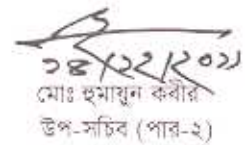 ১৪/১২/২০২১
মোঃ হুমায়ুন কবীর
উপ-সচিব (পার-২)